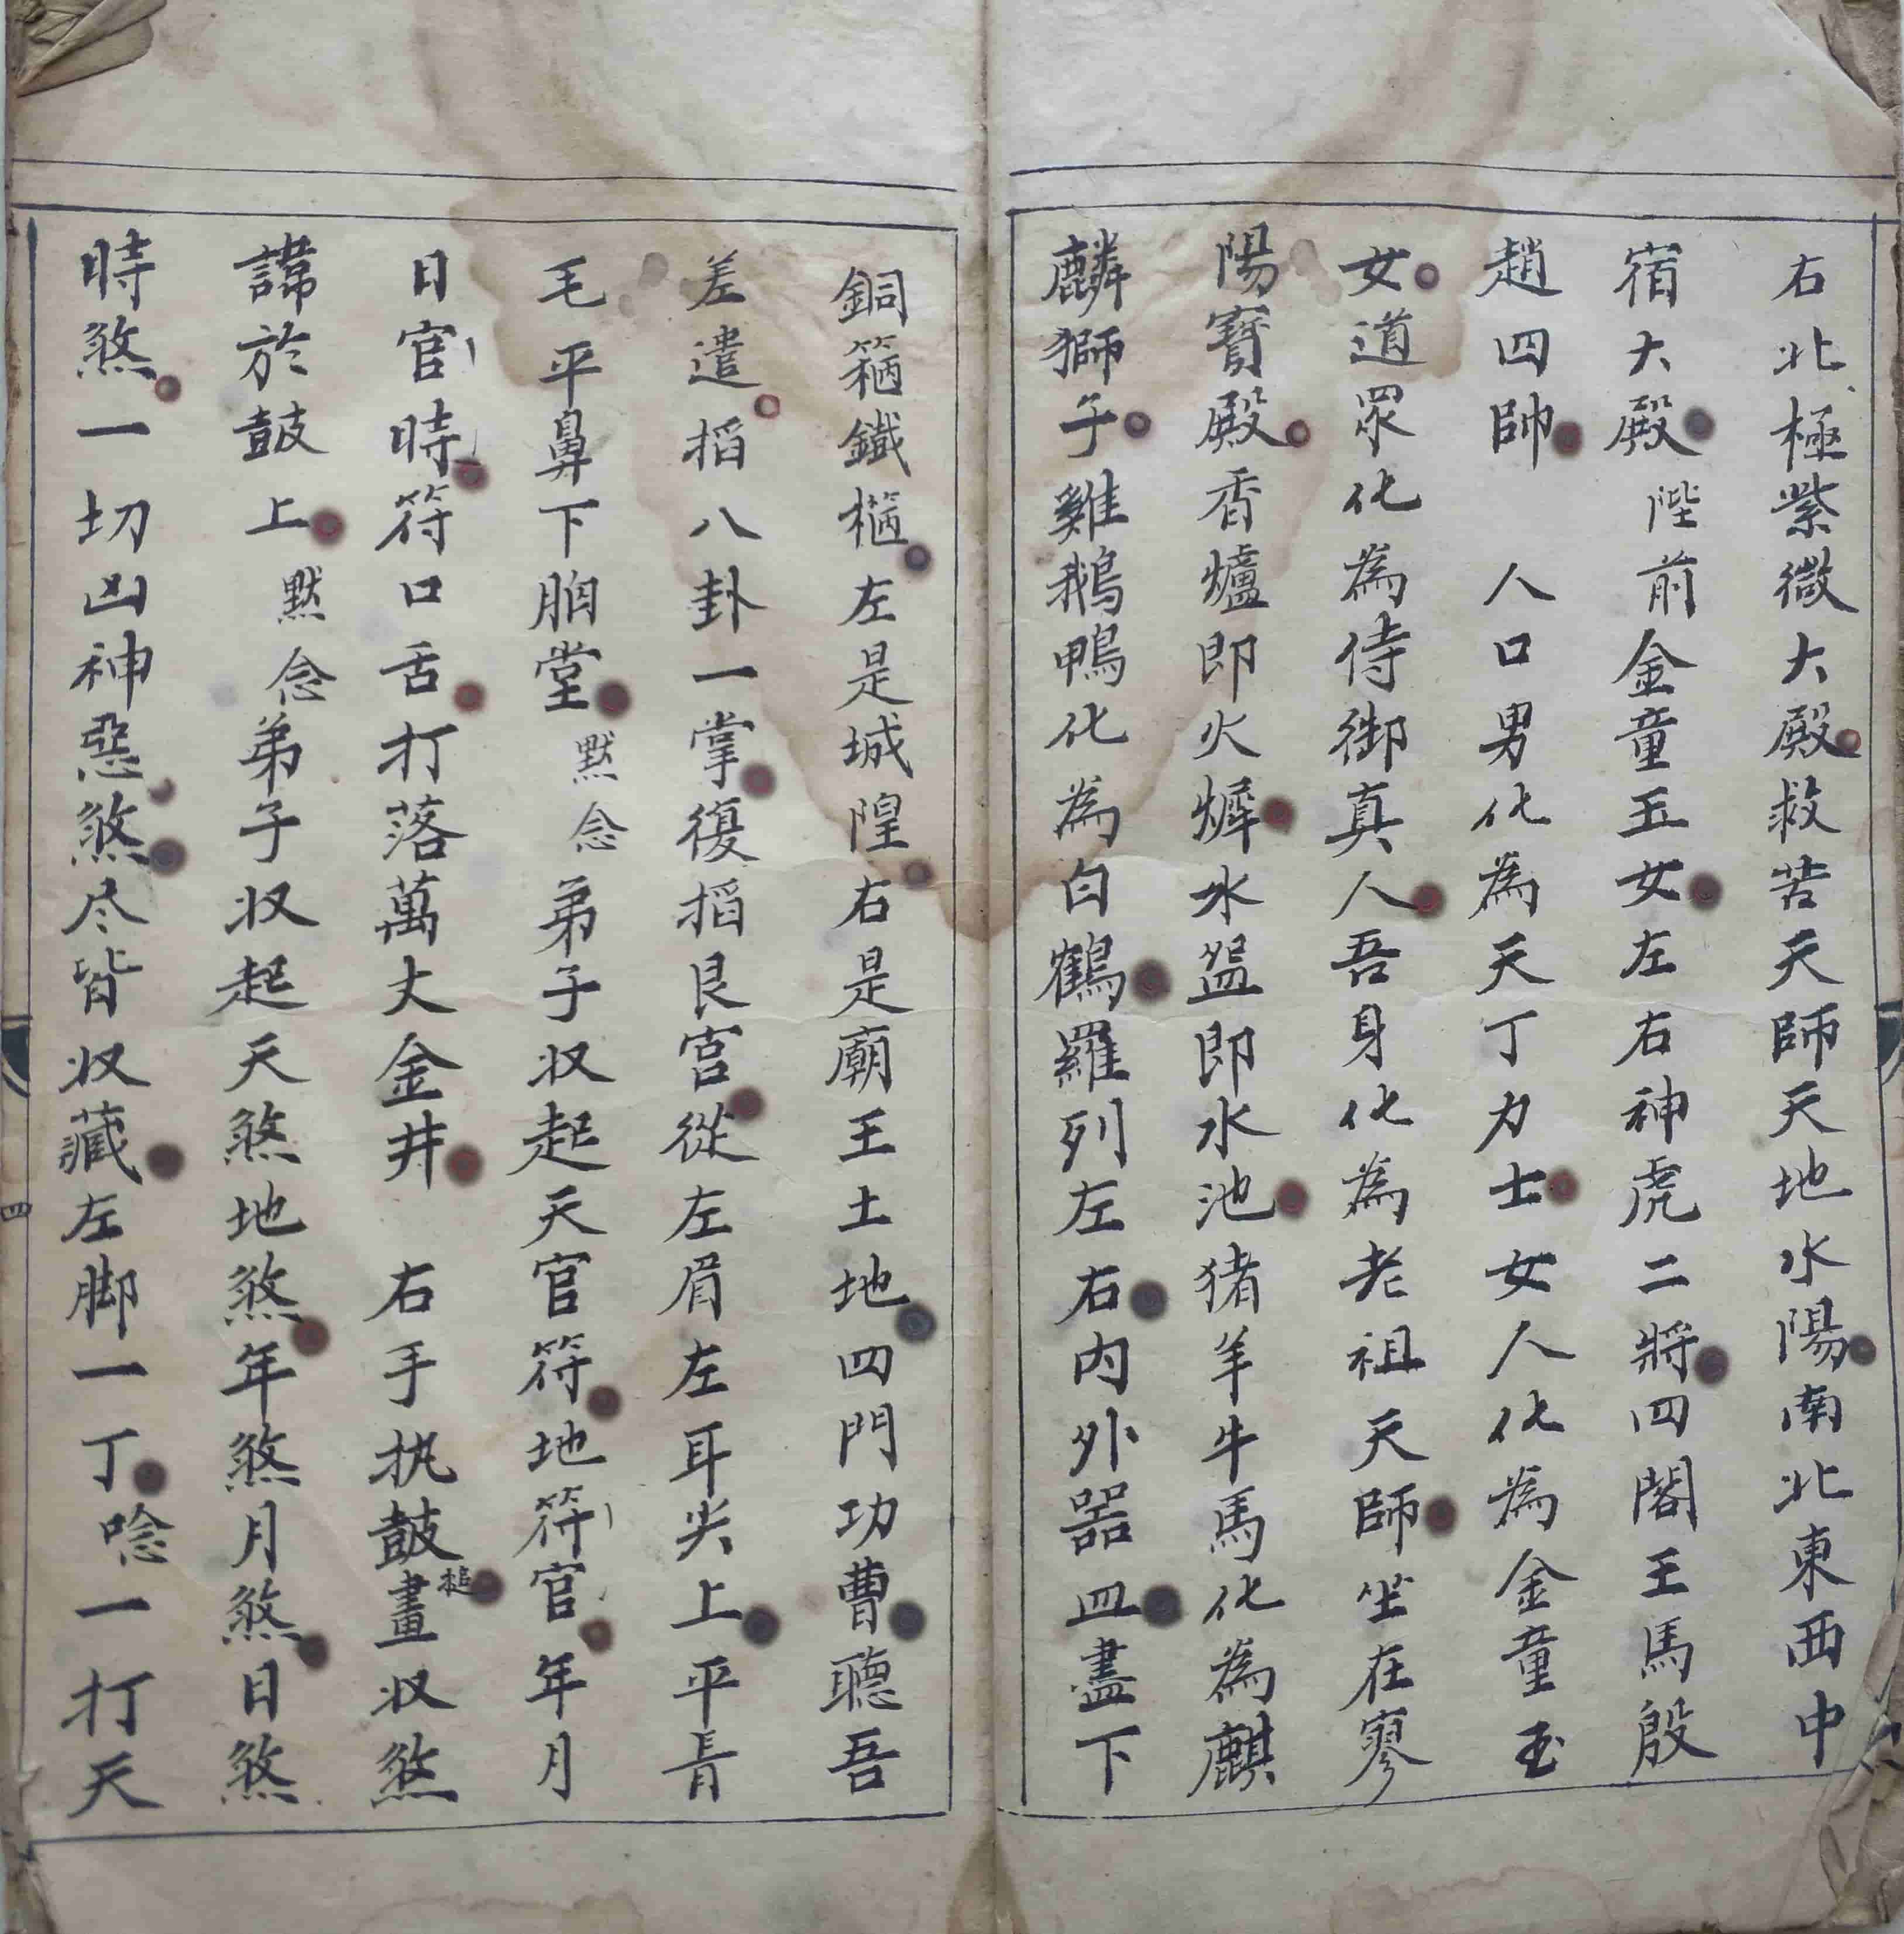 右北極紫微大殿救苦天師天地水陽南北東西中
宿大殿陛前金童玉女左右神虎二將四閣王馬殷
趙四帥 人口男化為天丁力士女人化為金童玉
女道眾化為侍御真人吾身化為老祖天師坐在寥
陽寶殿香爐即火熚水盌即水池猪羊牛馬化為麒
麟獅子雞鵝鴨化為白鶴羅列左右內外器皿盡下
銅箍鐵樋左是城隍右是廟王土地四門功曹聽吾
差遣掐八卦一掌復掐艮宮從左眉左耳尖上平青
毛平鼻下胭堂默念弟子収起天官符地符官年月
日官時符口舌打落萬丈金井 右手执鼓槌畫収煞
諱於鼓上默念弟子収起天煞地煞年煞月煞日煞
時煞一切凶神惡煞尽皆収藏左脚一丁唸一打天
四